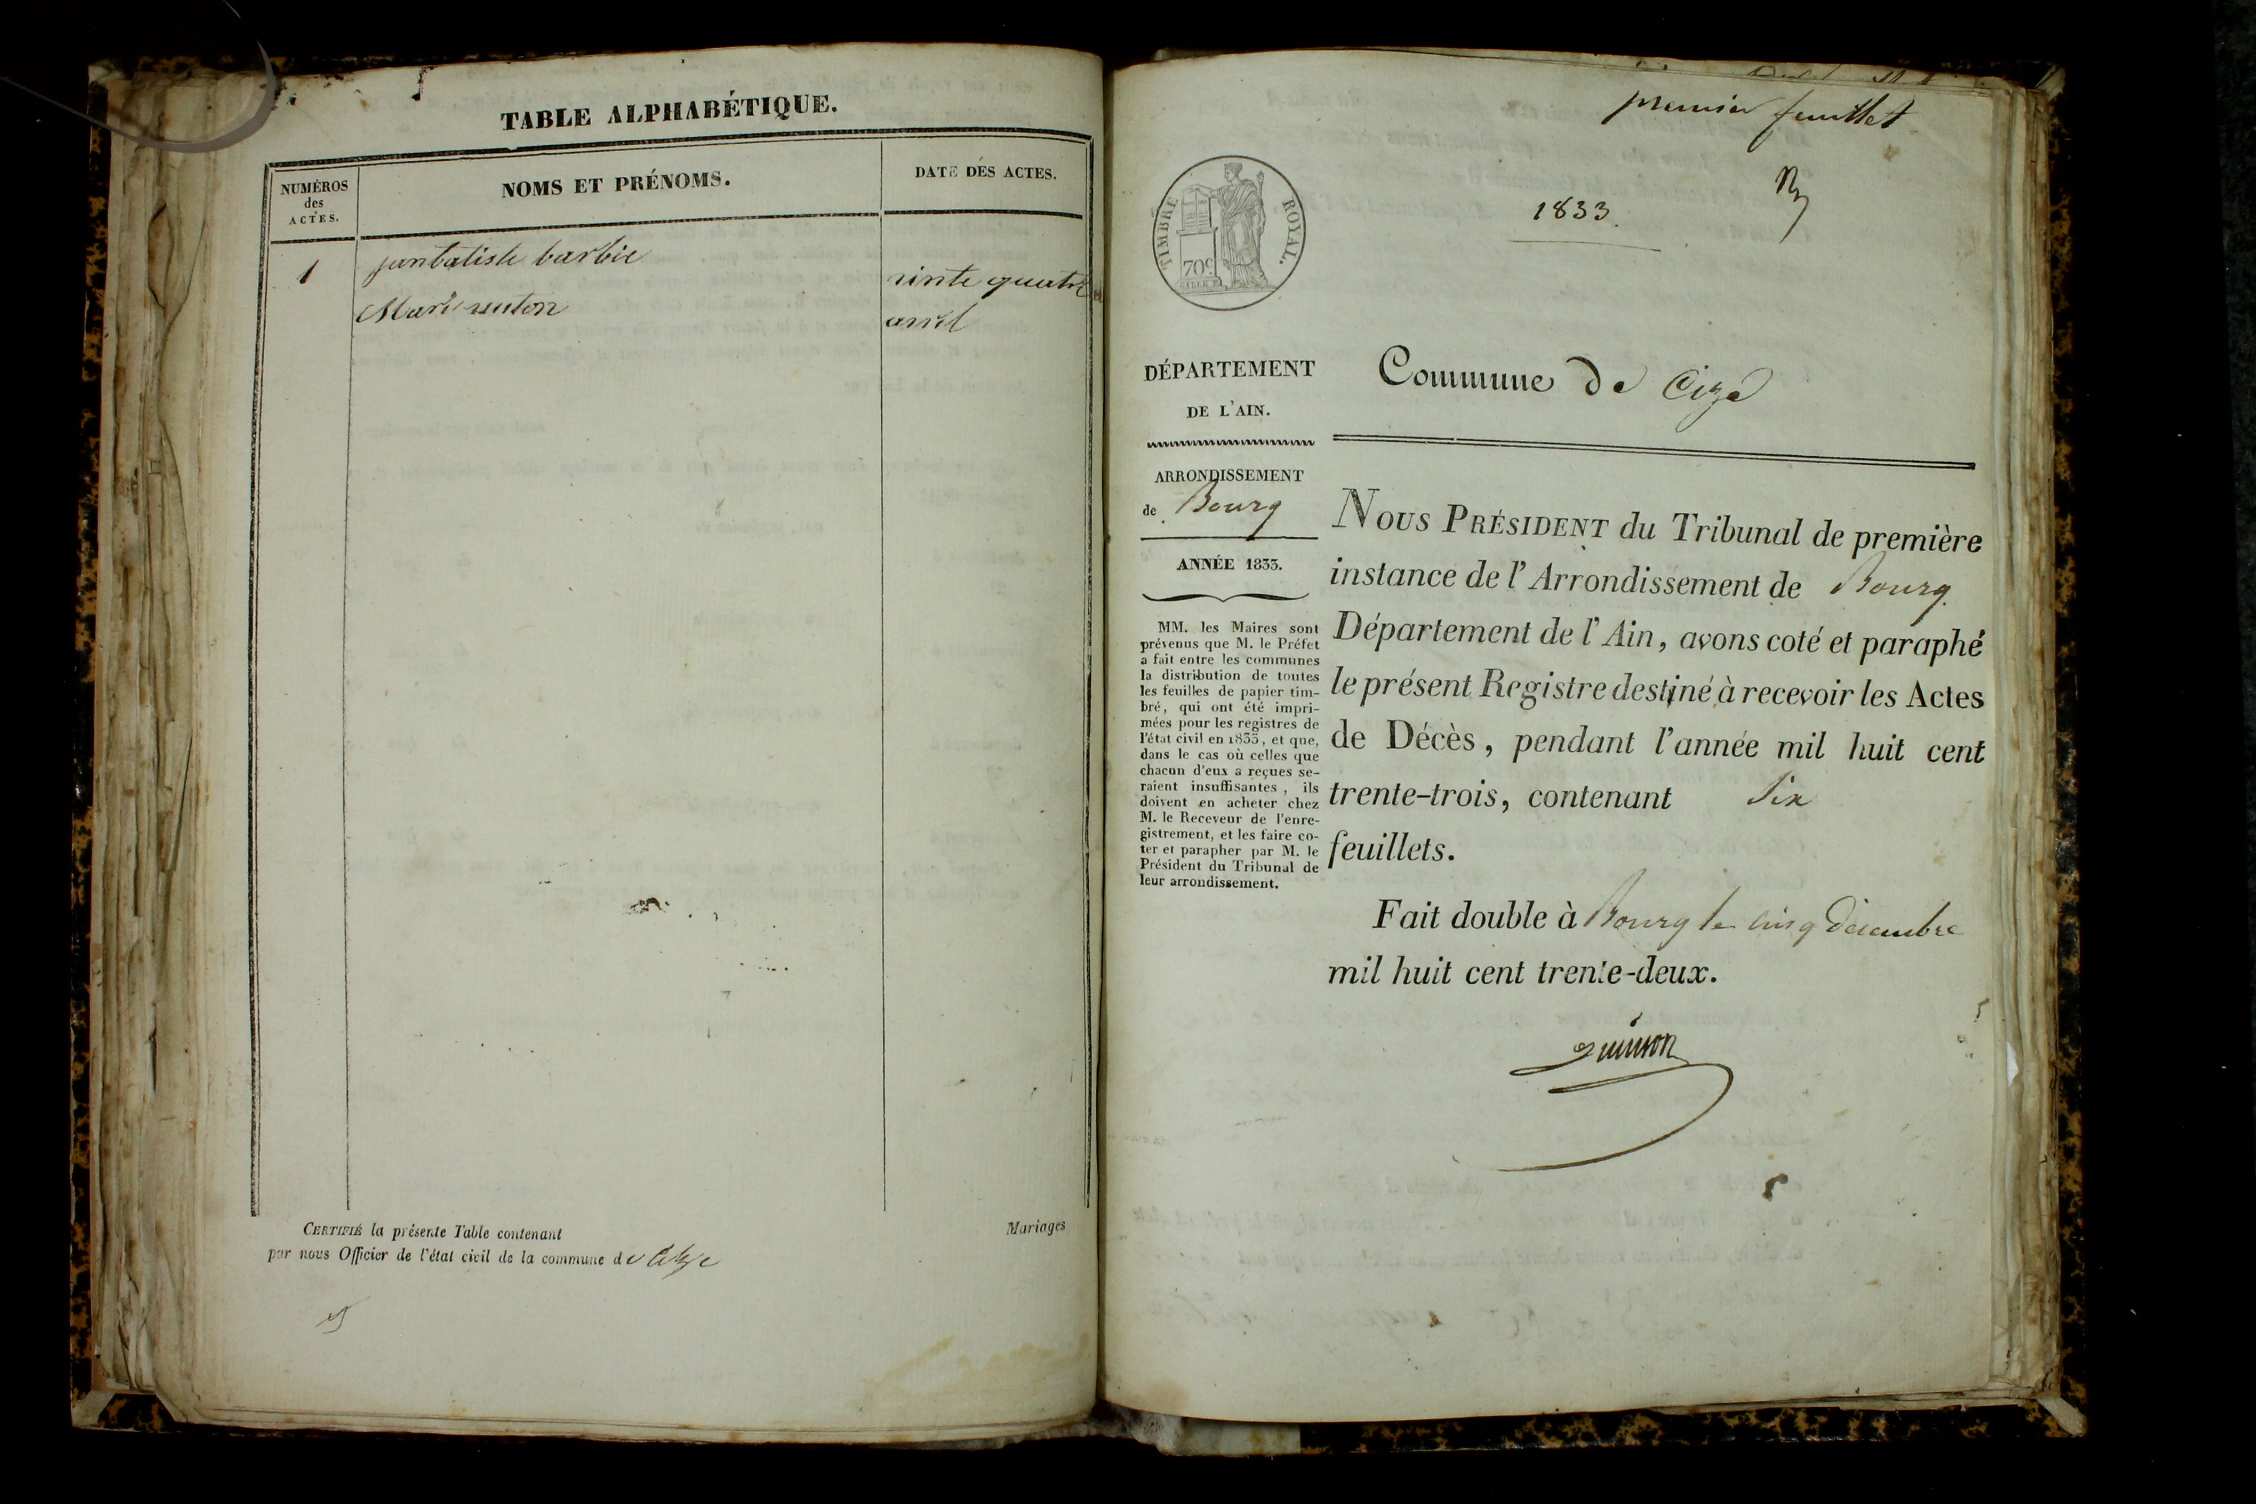 TABLE ALPHABÉTIQUE.
NUMÉROS
des
ACTES.
NOMS ET PRÉNOMS.
DATE DES ACTES.
1
janbatiste barbié
vinte quatre
Marie
avril
CERTIFIÉ la présente Table contenant
Mariages
par nous Officier de l'état civil de la commune de Cize
premier feuillet
1833.
TIMBRE ROYAL.
70c
DÉPARTEMENT
DE L'AIN.
Commune de Cize
ARRONDISSEMENT
de Bourg
ANNÉE 1833.
MM. les Maires sont
prévenus que M. le Préfet
a fait entre les communes
la distribution de toutes
les feuilles de papier tim-
bré, qui ont été impri-
mées pour les registres de
l'état civil en 1833, et que,
dans le cas où celles que
chacun d'eux a reçues se-
raient insuffisantes, ils
doivent en acheter chez
M. le Receveur de l'enre-
gistrement, et les faire co-
ter et parapher par M. le
Président du Tribunal de
leur arrondissement.
NOUS PRÉSIDENT du Tribunal de première
instance de l'Arrondissement de Bourg
Département de l'Ain, avons coté et paraphé
le présent Registre destiné à recevoir les Actes
de Décès, pendant l'année mil huit cent
trente-trois, contenant Six
feuillets.
Fait double à Bourg le cinq Décembre
mil huit cent trente-deux.